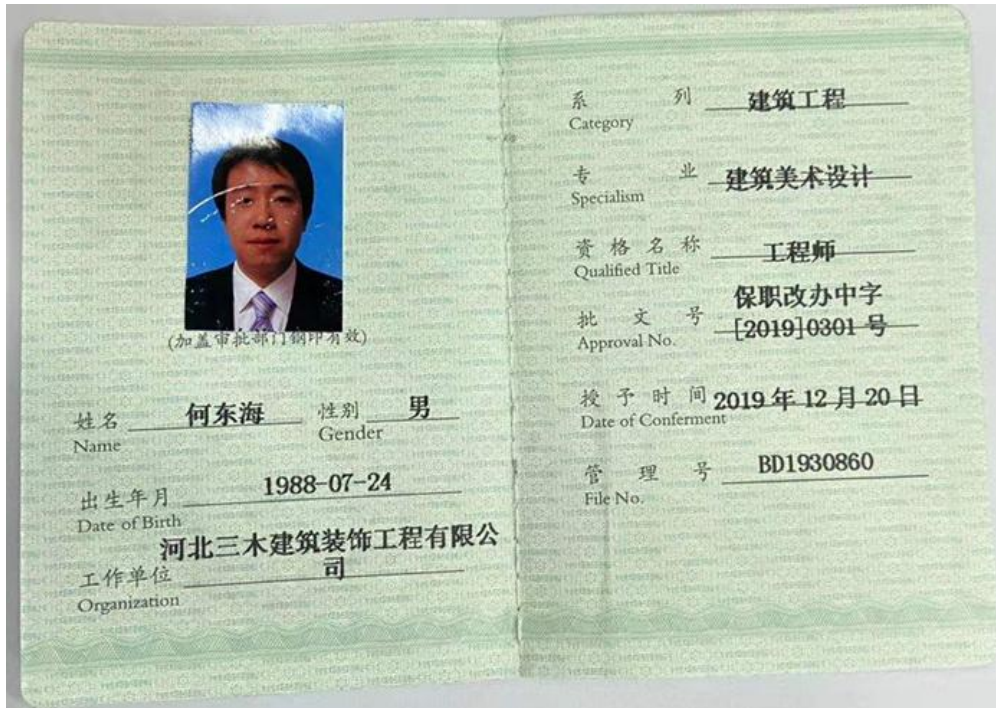 (加盖审批部门钢印有效)
姓名 何东海 性别 男
Name Gender
出生年月 1988-07-24
Date of Birth
河北三木建筑装饰工程有限公
工作单位 司
Organization
系 列 建筑工程
Category
专 业 建筑美术设计
Specialism
资格名称 工程师
Qualified Title
保职改办中字
批 文 号 [2019]0301 号
Approval No.
授予时间 2019 年 12 月 20 日
Date of Conferment
管 理 号 BD1930860
File No.